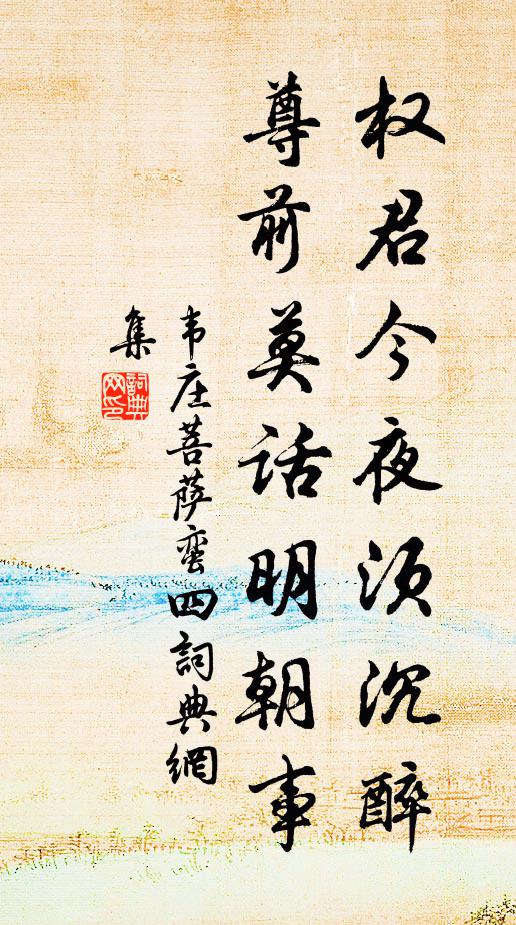 权君今夜须沉醉
尊前莫话明朝事
韦庄菩萨蛮四詞典網
集
詞典
网印